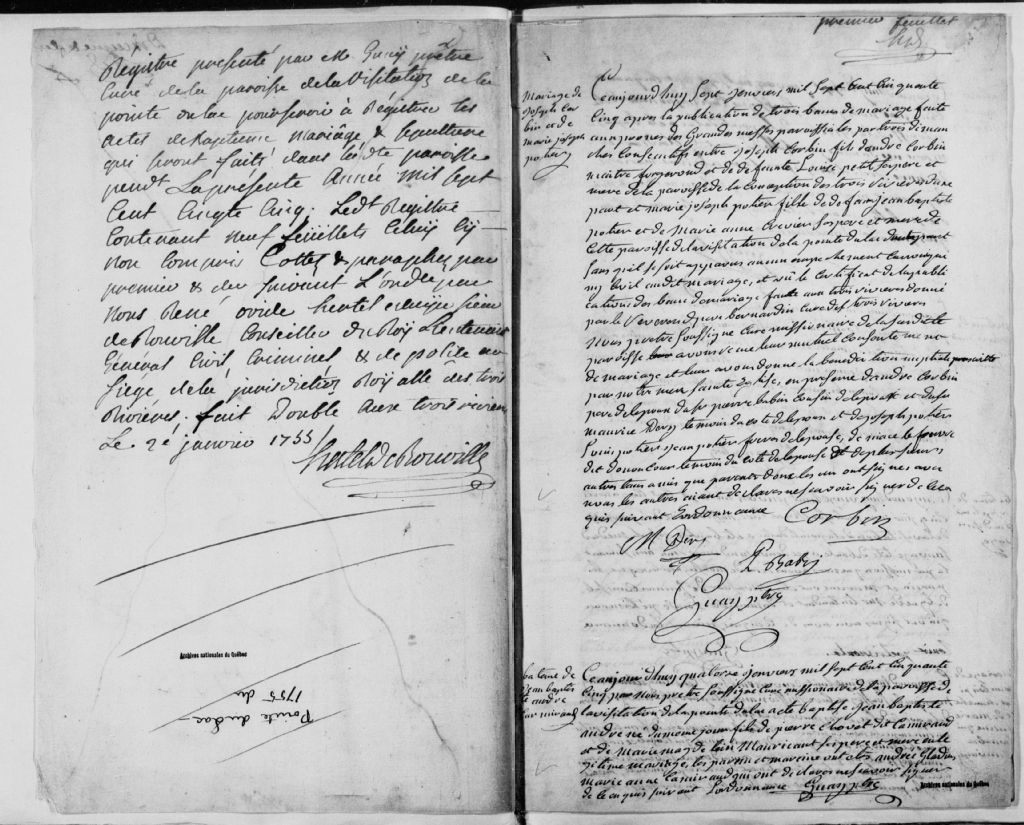 Registre presenté par Mr Guay prêtre
Curé de la paroisse de la Visitation de la
pointe du lac pour servir à Régistrer les
actes de Baptesme Mariage & Sepulture
qui seront faits dans lad.te paroisse
pend.t La présente Année mil sept
Cent Cinqte Cinq. Led.t Registre
Contenant neuf feüillets Celuy Cy
non Compris Cottez & paraphez par
premier & der suivant L'ond.ce par
Nous René ovide hertel sieur
de Rouville Conseiller du Roy Lieutenant
Général Civil, Criminel & de police au
siege de la jurisdiction Royalle des trois
Rivieres. fait Double aux trois rivieres
Le 2e janvier 1755
Hertel de Rouville
Archives nationales du Québec
Pointe du Lac
1755
premier feuillet
Mariage de
Joseph Cor
bin et de
marie joseph
potier
Ceaujourdhuy sept janvers mil sept cent cinquante
Cinq apres la publication de trois bans de mariage faite
aux prones des Grandes messes paroissiales par trois diman
ches Consecutifs entre joseph Corbin fils dandre Corbin
maitre forgerond et de defeunte Louise petit ses pere et
mere de la paroisse de la Conception des trois Rivieres dune
part et marie joseph potier fille de defeunt jean baptiste
potier et de Marie anne Crevier ses pere et mere de
Cette paroisse de la visitation de la pointe du lac dautre part
sans quil se soit apparus aucun empechement Canonique
ny Civil audit mariage, et vû le Certificat de la publi
cations des bans de mariage faitte aux trois rivieres donné
par le Reverend pere bernardin Curé des trois Rivieres
Nous pretre soussigne Curé missionaire de la susdite
paroisse avons reçu leur mutuel Consentement
de mariage et leur avons donné la benediction nuptiale prescritte
par notre mere sainte Eglise, en presence dandre Corbin
pere de lepoux du sr pierre babin Cousin de lepoux et du sr
maurice Dery temoin du coté de lepoux et de joseph potier
Louis potier jean potier freres de lepouse, de
dit temoin du coté de lepouse et de plusieurs
autres tant amis que parents dont les uns ont signes avec
nous les autres aiant declarés ne scavoir signer de ce en
quis suivant Lordonnance Corbin
M Dery
P Babin
Guay ptre
bateme de
jean baptis
te andre
Camirand
Ceaujourdhuy quatorze janvers mil sept cent cinquante
Cinq par Nous pretre soussigné Curé missionaire de la paroisse de
la visitation de la pointe du lac a eté baptisé jean baptiste
andre né du meme jour fils de pierre dit Camirand
et de Marie ses pere et mere en le
gitime mariage, les parein et mareine ont etes andré
marie anne Camirand qui ont declares ne scavoir signer
de ce enquis suivant Lordonnance Guay ptre
Archives nationales du Québec